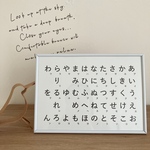 Look up at the sky
and take a deep breath.
Close your eyes.
わらやまはなたさかあ
りみひにちしきい
をるゆむふぬつすくう
れめへねてせけえ
んろよもほのとそこお